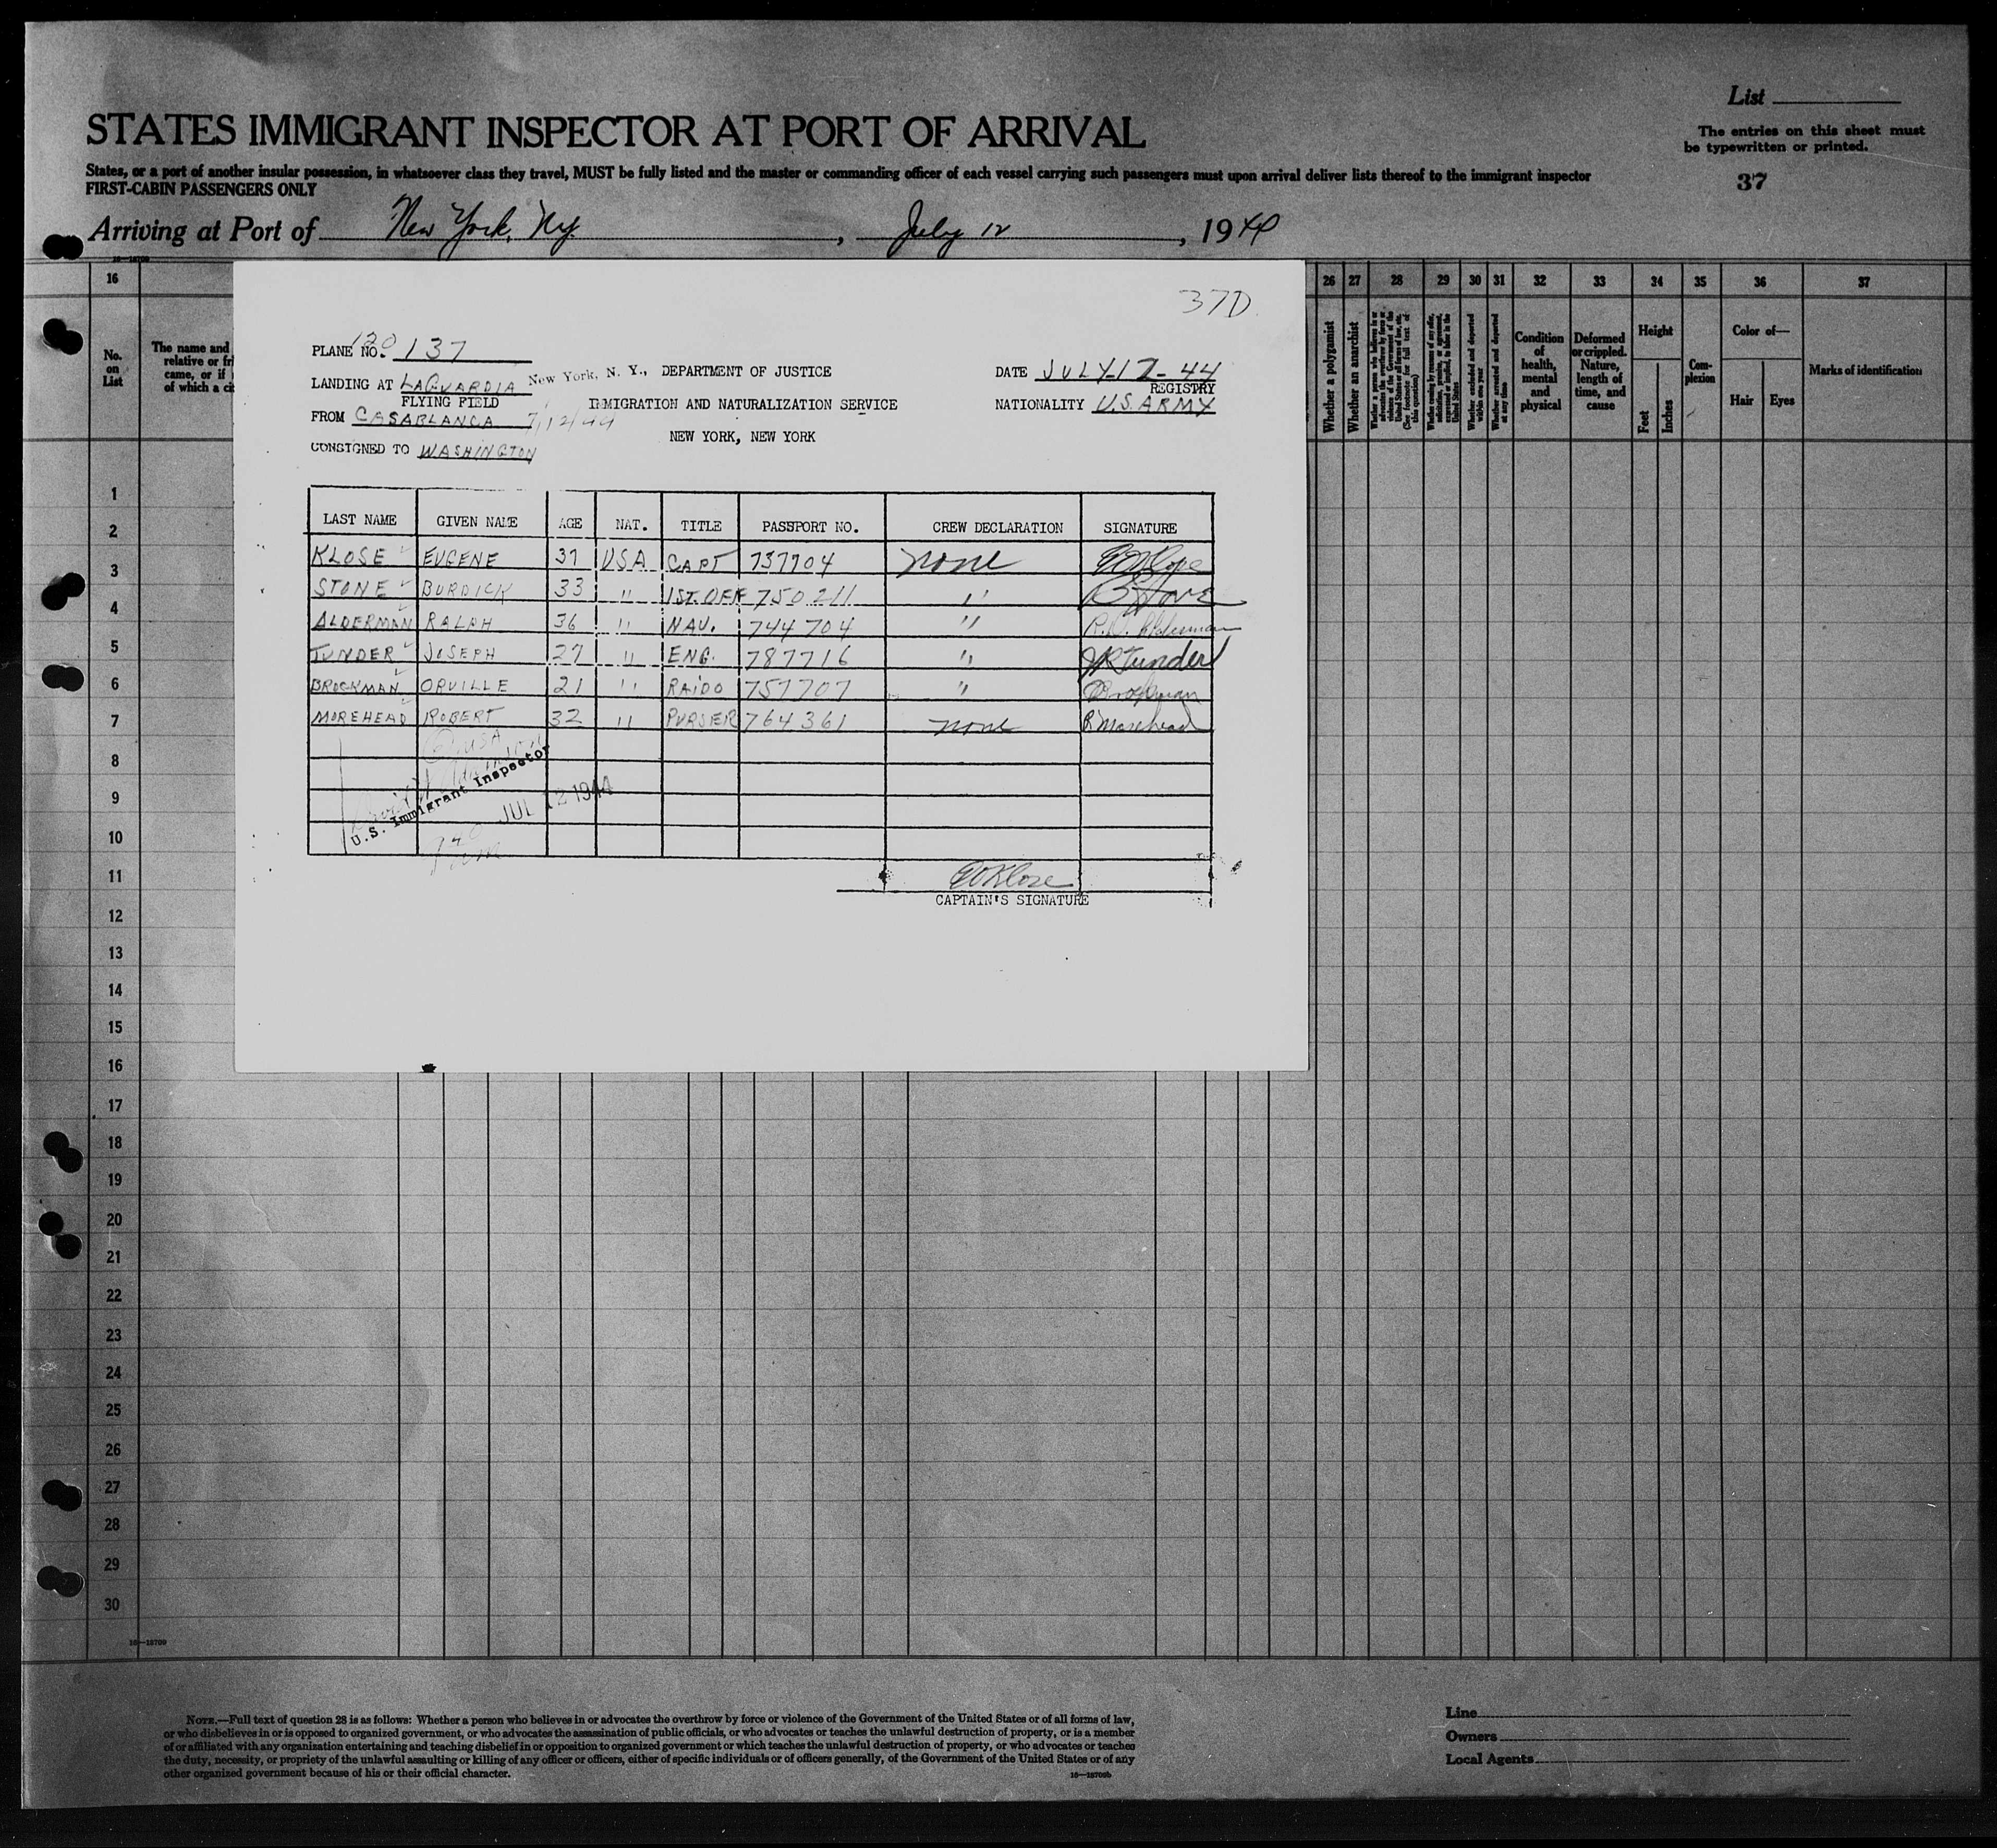 List
STATES IMMIGRANT INSPECTOR AT PORT OF ARRIVAL
The entries on this sheet must
be typewritten or printed.
States, or a port of another insular possession, in whatsoever class they travel, MUST be fully listed and the master or commanding officer of each vessel carrying such passengers must upon arrival deliver lists thereof to the immigrant inspector
FIRST-CABIN PASSENGERS ONLY
37
Arriving at Port of New York, Ny, July 12, 1944
16—18709
16
No. on List
The name and
relative or fr
came, or if
of which a ci
26 27 28 29 30 31 32 33 34 35 36 37
Whether a polygamist
Whether an anarchist
Condition of health, mental and physical
Deformed or crippled. Nature, length of time, and cause
Height
Feet
Inches
Complexion
Color of—
Hair
Eyes
Marks of identification
37D.
120
PLANE NO. 137
LANDING AT LAGUARDIA New York, N. Y., DEPARTMENT OF JUSTICE DATE JULY-12-44
FLYING FIELD IMMIGRATION AND NATURALIZATION SERVICE REGISTRY
FROM CASABLANCA 7/12/44 NATIONALITY U.S. ARMY
NEW YORK, NEW YORK
CONSIGNED TO WASHINGTON
LAST NAME GIVEN NAME AGE NAT. TITLE PASSPORT NO. CREW DECLARATION SIGNATURE
KLOSE EUGENE 37 USA CAPT 737704 none EWKlose
STONE BURDICK 33 " 1ST.OFF 750211 " BStone
ALDERMAN RALPH 36 " NAV. 744704 " R.D. Alderman
TUNDER JOSEPH 27 " ENG. 787716 " JRTunder
BROCKMAN ORVILLE 21 " RAIDO 757707 " OBrockman
MOREHEAD ROBERT 32 " PURSER 764361 none R Morehead
6 USA
U.S. Immigrant Inspector
JUL 12 1944
EWKlose
CAPTAIN'S SIGNATURE
1
2
3
4
5
6
7
8
9
10
11
12
13
14
15
16
17
18
19
20
21
22
23
24
25
26
27
28
29
30
16—18709
NOTE.—Full text of question 28 is as follows: Whether a person who believes in or advocates the overthrow by force or violence of the Government of the United States or of all forms of law,
or who disbelieves in or is opposed to organized government, or who advocates the assassination of public officials, or who advocates or teaches the unlawful destruction of property, or is a member
of or affiliated with any organization entertaining and teaching disbelief in or opposition to organized government or which teaches the unlawful destruction of property, or who advocates or teaches
the duty, necessity, or propriety of the unlawful assaulting or killing of any officer or officers, either of specific individuals or of officers generally, of the Government of the United States or of any
other organized government because of his or their official character.
16—18709b
Line
Owners
Local Agents